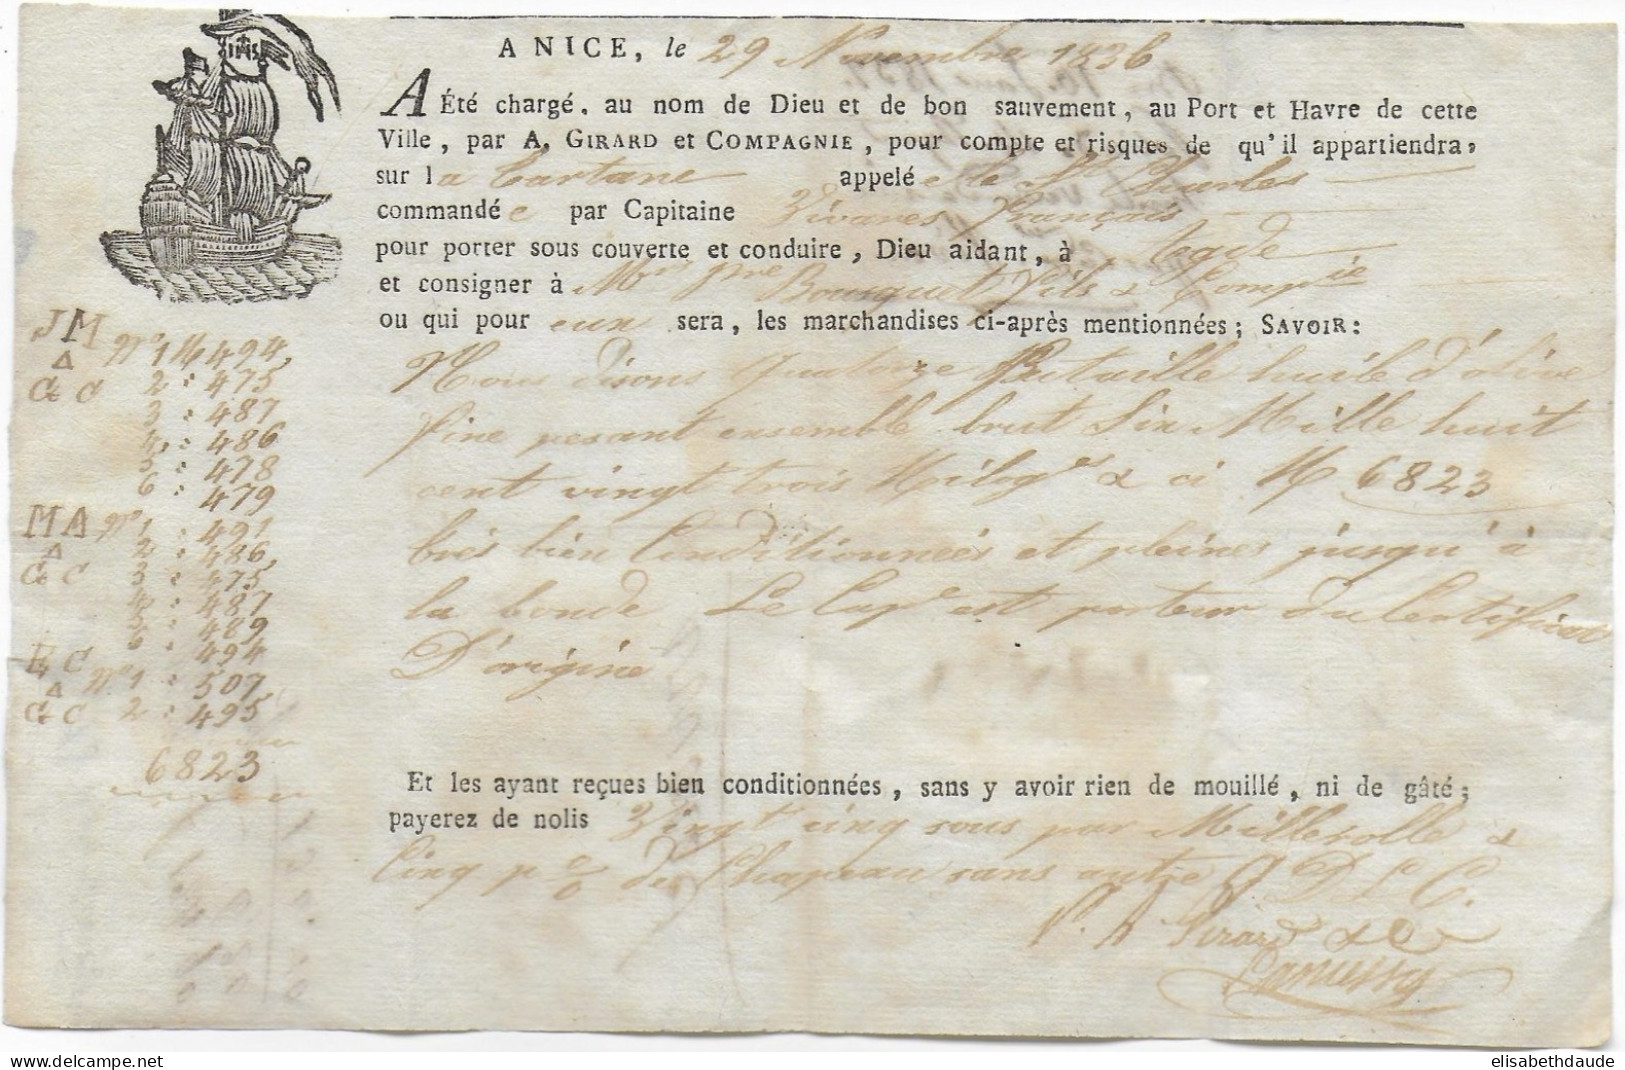 A NICE, le 29 Novembre 1836
A Été chargé, au nom de Dieu et de bon sauvement, au Port et Havre de cette
Ville, par A. GIRARD et COMPAGNIE, pour compte et risques de qu'il appartiendra,
sur la Tartane appelée le St Charles
commandée par Capitaine Vivarés François
pour porter sous couverte et conduire, Dieu aidant, à Agde
et consigner à Mrs Pre Bousquet fils & Compie
ou qui pour eux sera, les marchandises ci-après mentionnées; SAVOIR:
Nous disons Quatorze Futaille huile d'olive
fine pesant ensemble brut Six Mille huit
cent vingt trois Kilogs & ci K 6823
très bien Conditionnées et pleines jusqu'à
la bonde Le Cape est porteur du Certificat
D'origine
JM No 1 K 494,
Δ 2 : 475
G C 3 : 487
4 : 486
5 : 478
6 : 479
MA No 1 : 491
Δ 2 : 486,
G C 3 : 475,
4 : 487
5 : 489
6 : 494
C No 1 : 507,
Δ
G C 2 : 495
6823
Et les ayant reçues bien conditionnées, sans y avoir rien de mouillé, ni de gâté;
payerez de nolis Vingt cinq sous par Millerolle &
Cinq p % de Chapeau sans autre D L C.
P. A Girard & Ce
elisabethdaude